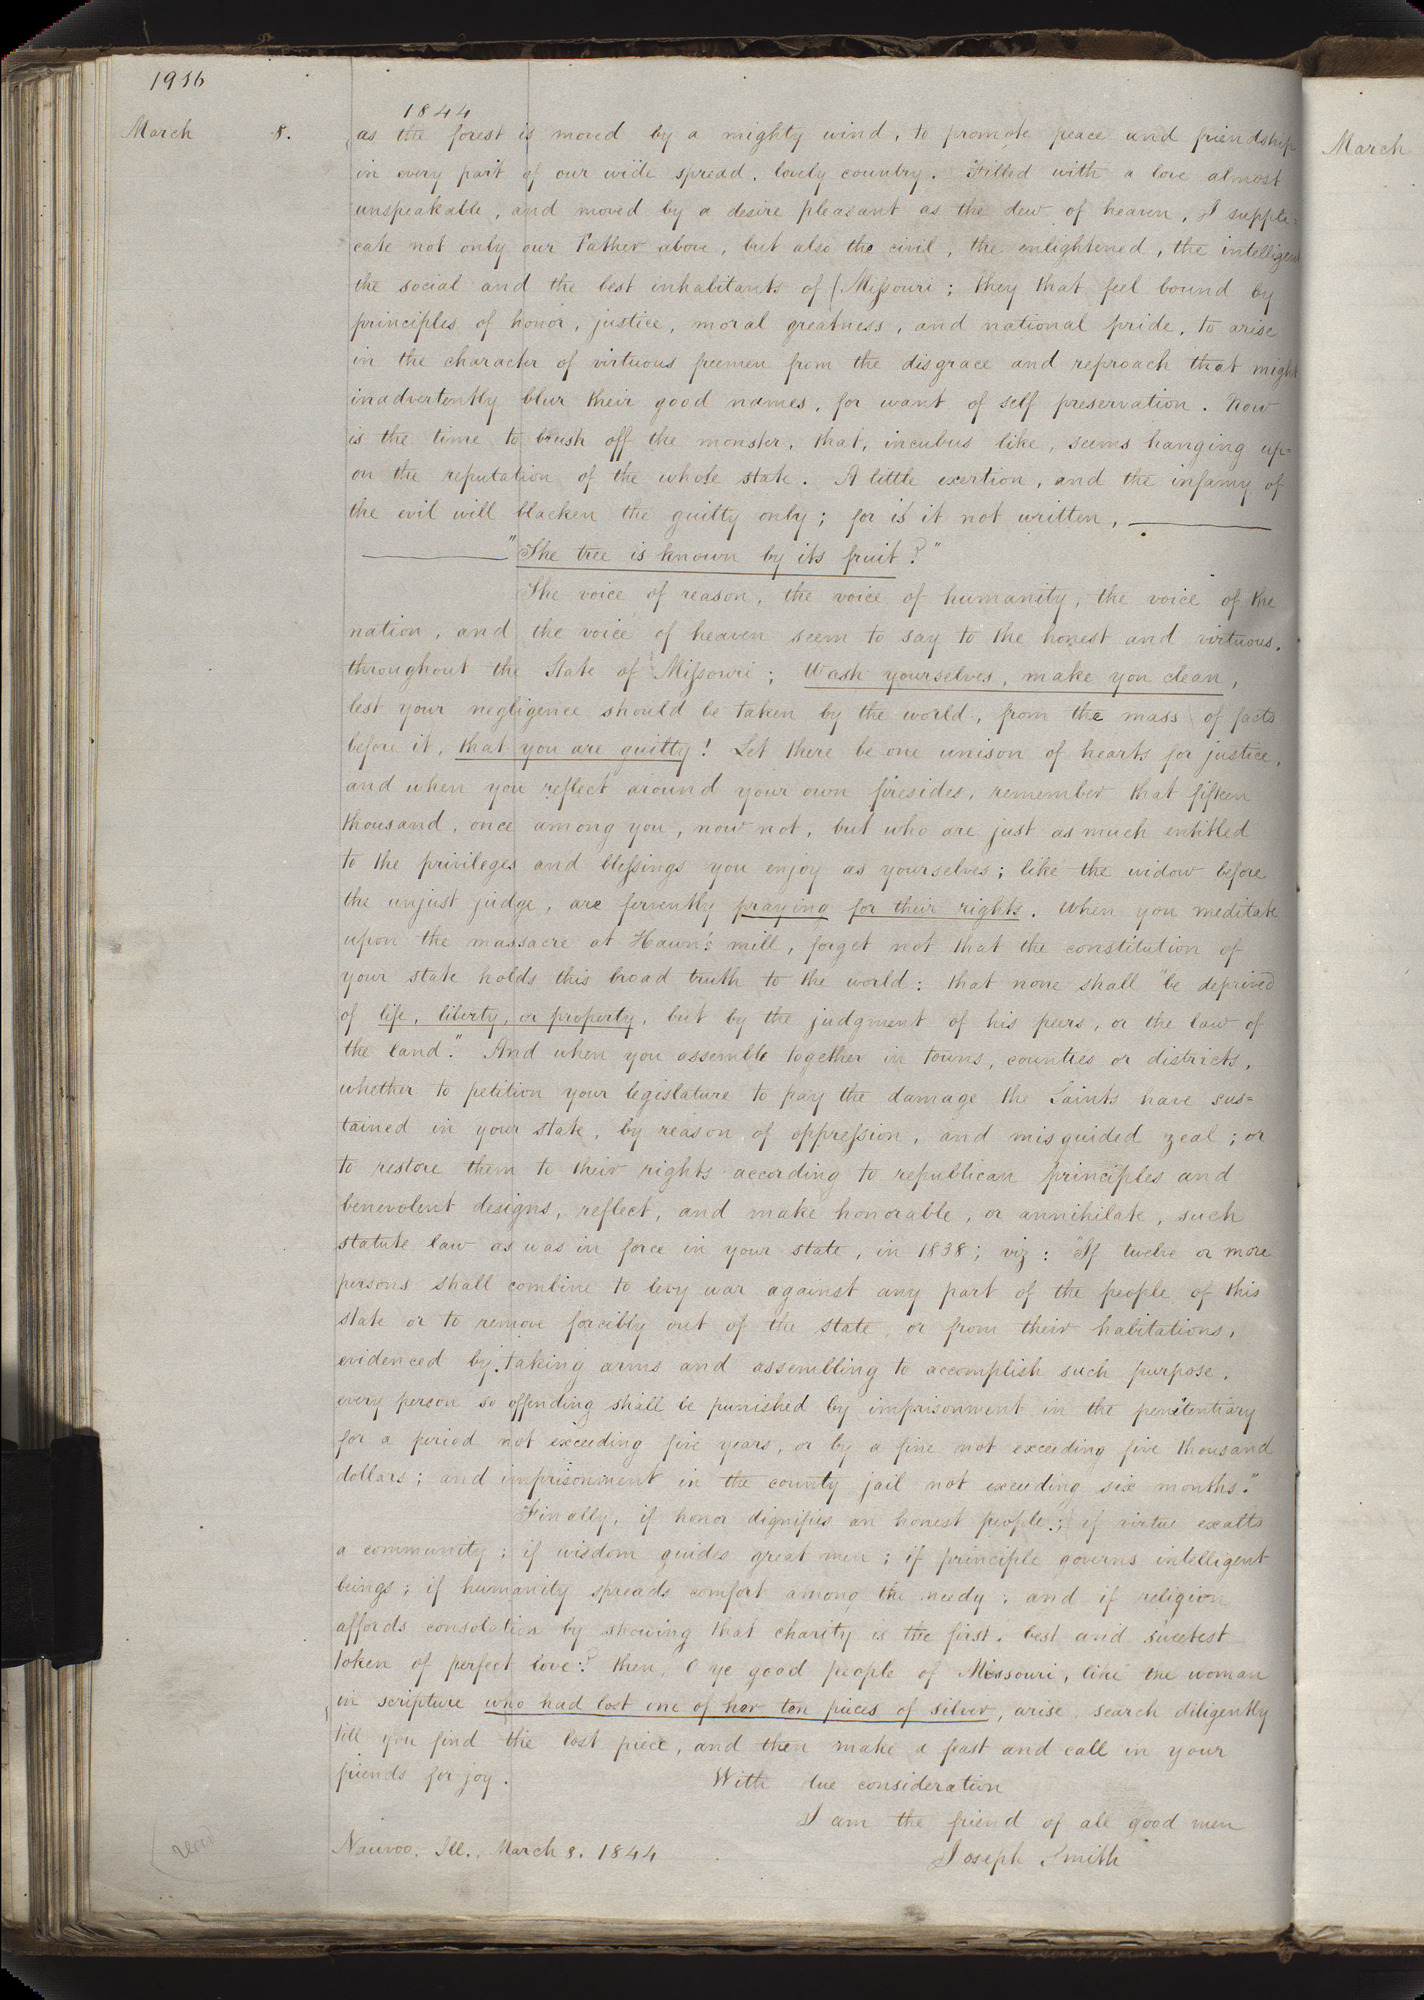 1916
1844
March 8. as the forest is moved by a mighty wind, to promote peace and friendship
March
in every part of our wide spread, lovely country. Filled with a love almost
unspeakable, and moved by a desire pleasant as the dew of heaven, I supple=
cate not only our Father above, but also the civil, the enlightened, the intelligent
the social and the best inhabitants of Missouri; they that feel bound by
principles of honor, justice, moral greatness, and national pride, to arise
in the character of virtuous freemen from the disgrace and reproach that might
inadvertently blur their good names, for want of self preservation. Now
is the time to brush off the monster, that, incubus like, seems hanging up=
on the reputation of the whole state. A little exertion, and the infamy of
the evil will blacken the guilty only; for is it not written, ———
——— "The tree is known by its fruit?"
The voice of reason, the voice of humanity, the voice of the
nation, and the voice of heaven seem to say to the honest and virtuous,
throughout the State of Missouri; Wash yourselves, make you clean,
lest your negligence should be taken by the world, from the mass of facts
before it, that you are guilty! Let there be one unison of hearts for justice,
and when you reflect around your own firesides, remember that fifteen
thousand, once among you, now not, but who are just as much entitled
to the privileges and blessings you enjoy as yourselves; like the widow before
the unjust judge, are fervently praying for their rights. When you meditate
upon the massacre at Hawn's mill, forget not that the constitution of
your state holds this broad truth to the world: that none shall "be deprived
of life, liberty, or property, but by the judgment of his peers, or the law of
the land." And when you assemble together in towns, counties or districts,
whether to petition your legislature to pay the damage the Saints have sus=
tained in your state, by reason of oppression, and misguided zeal; or
to restore them to their rights according to republican principles and
benevolent designs, reflect, and make honorable, or annihilate, such
statute law as was in force in your state, in 1838; viz: "If twelve or more
persons shall combine to levy war against any part of the people of this
state or to remove forcibly out of the state, or from their habitations,
evidenced by taking arms and assembling to accomplish such purpose,
every person so offending shall be punished by imprisonment in the penitentiary
for a period not exceeding five years, or by a fine not exceeding five thousand
dollars; and imprisonment in the county jail not exceeding six months."
Finally, if honor dignifies an honest people; if virtue exalts
a community; if wisdom guides great men; if principle governs intelligent
beings; if humanity spreads comfort among the needy; and if religion
affords consolation by showing that charity is the first, best and sweetest
token of perfect love: then, O ye good people of Missouri, like the woman
in scripture who had lost one of her ten pieces of silver, arise, search diligently
till you find the lost piece, and then make a feast and call in your
friends for joy. With due consideration
I am the friend of all good men
Nauvoo, Ill., March 8. 1844 Joseph Smith